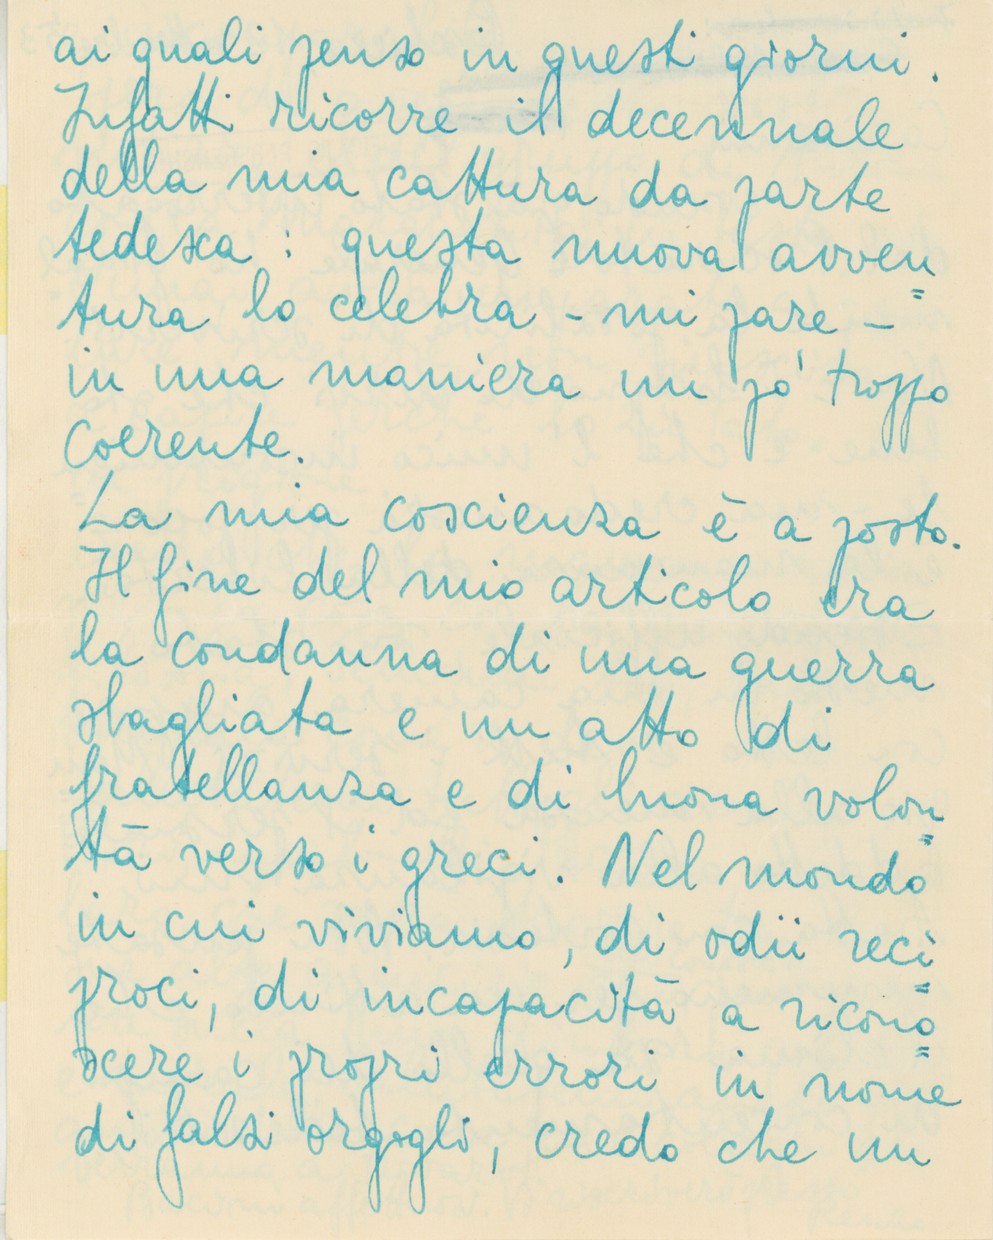 ai quali penso in questi giorni.
Infatti ricorre il decennale
della mia cattura da parte
tedesca: questa nuova avven=
tura lo celebra - mi pare -
in una maniera un pó troppo
coerente.
La mia coscienza è a posto.
Il fine del mio articolo era
la condanna di una guerra
sbagliata e un atto di
fratellanza e di buona volon=
tà verso i greci. Nel mondo
in cui viviamo, di odii reci=
proci, di incapacità a ricono=
scere i propri errori in nome
di falsi orgogli, credo che un